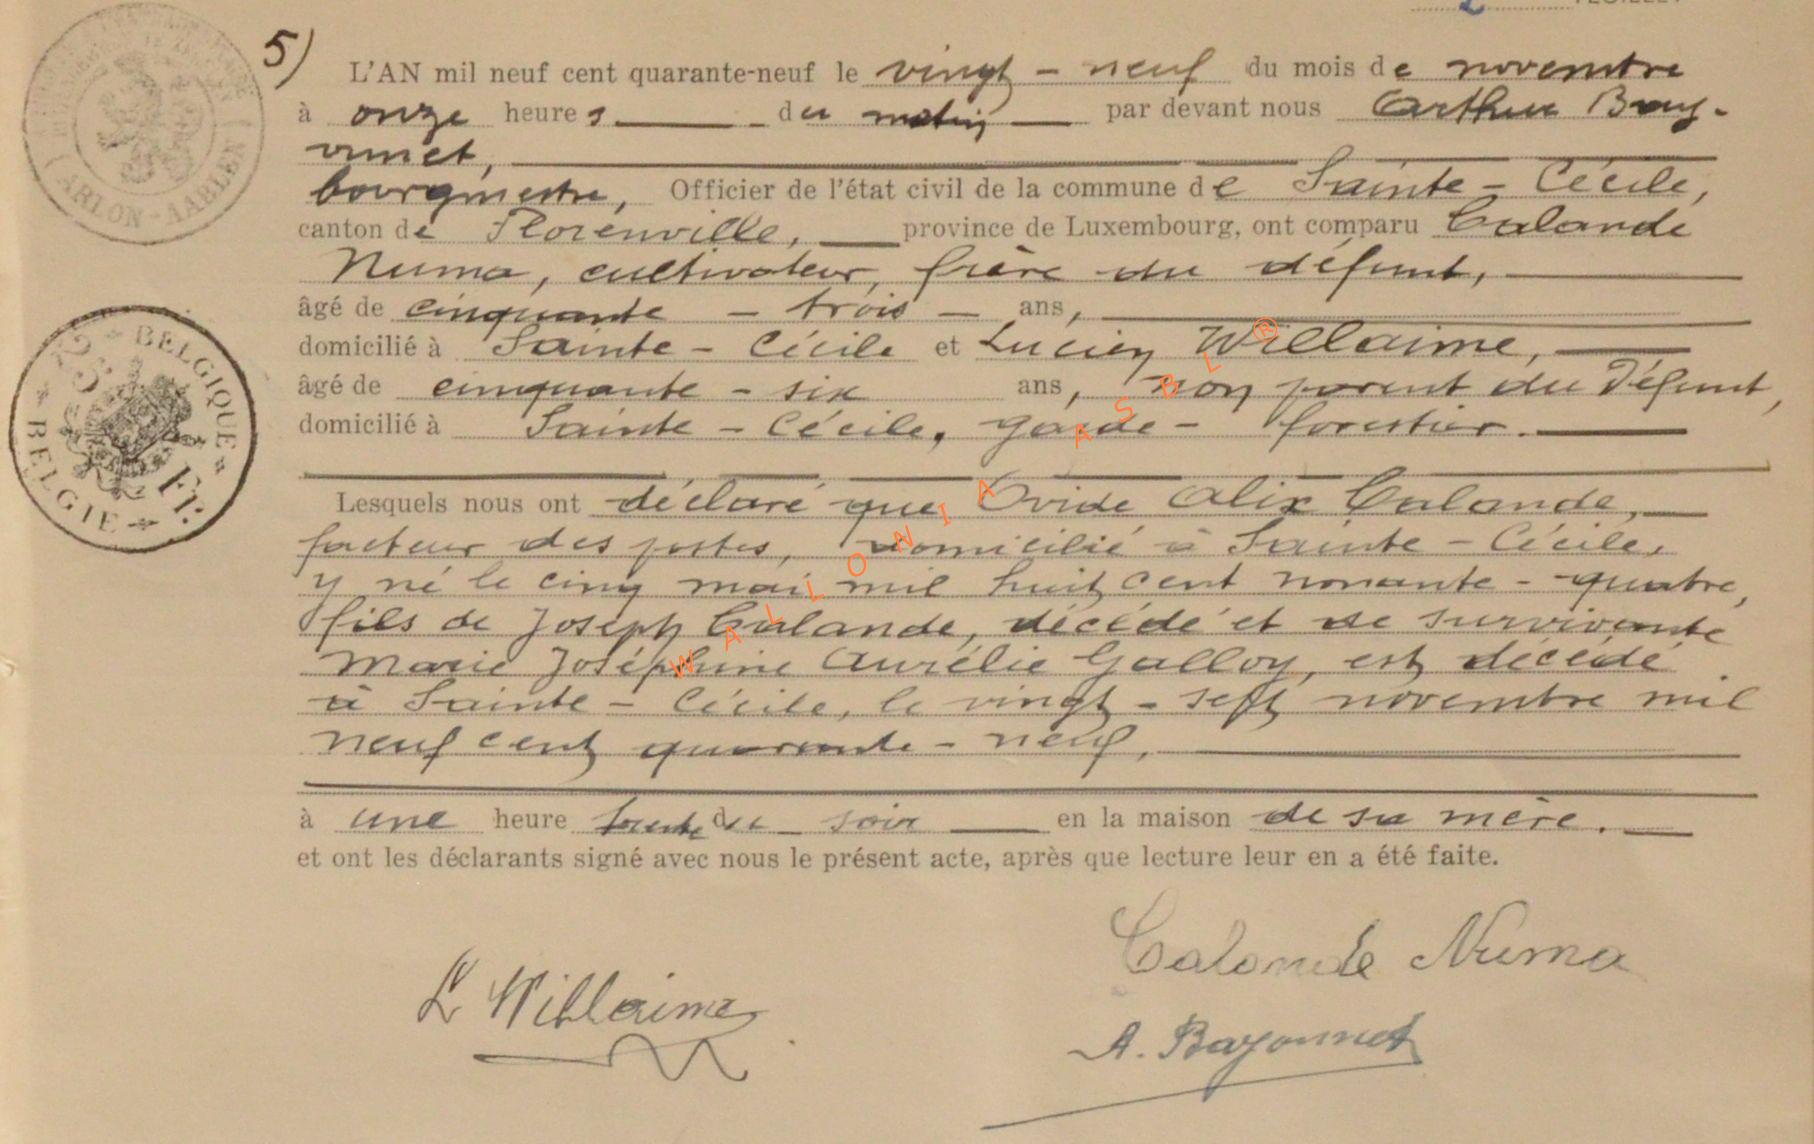 FEUILLET
5) L'AN mil neuf cent quarante-neuf le vingt - neuf du mois de novembre
à onze heures du matin par devant nous Arthur Bay-
onnet,
bourgmestre, Officier de l'état civil de la commune de Sainte - Cécile,
canton de Florenville, province de Luxembourg, ont comparu Calande
Numa, cultivateur, frère du défunt,
âgé de cinquante - trois - ans,
domicilié à Sainte - Cécile et Lucien Willaime,
âgé de cinquante - six ans, non parent du Défunt,
domicilié à Sainte - Cécile, garde - forestier.
Lesquels nous ont déclaré que Ovide Alix Calande,
facteur des postes, domicilié à Sainte - Cécile,
y né le cinq mai mil huit cent nonante - quatre,
fils de Joseph Calande, décédé et de survivante
Marie Joséphine Aurélie Galloy, est décédé
à Sainte - Cécile, le vingt - sept novembre mil
neuf cent quarante - neuf,
à une heure trente du soir en la maison de sa mère.
et ont les déclarants signé avec nous le présent acte, après que lecture leur en a été faite.
Calande Numa
L Willaime
A. Bayonnet
ARLON - AARLEN
BELGIQUE
BELGIE
25 Fr.
WALLONIA ASBL ®